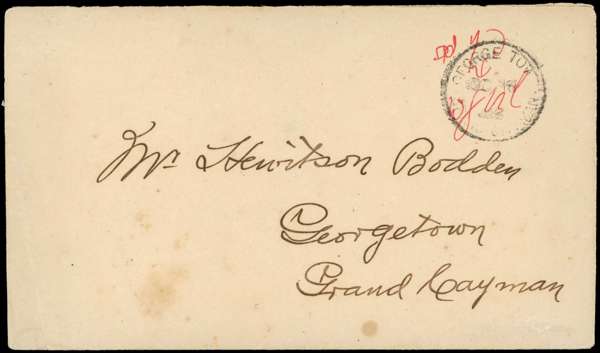 GEORGE TOW
Mr Hewitson Bodden
Georgetown
Grand Cayman